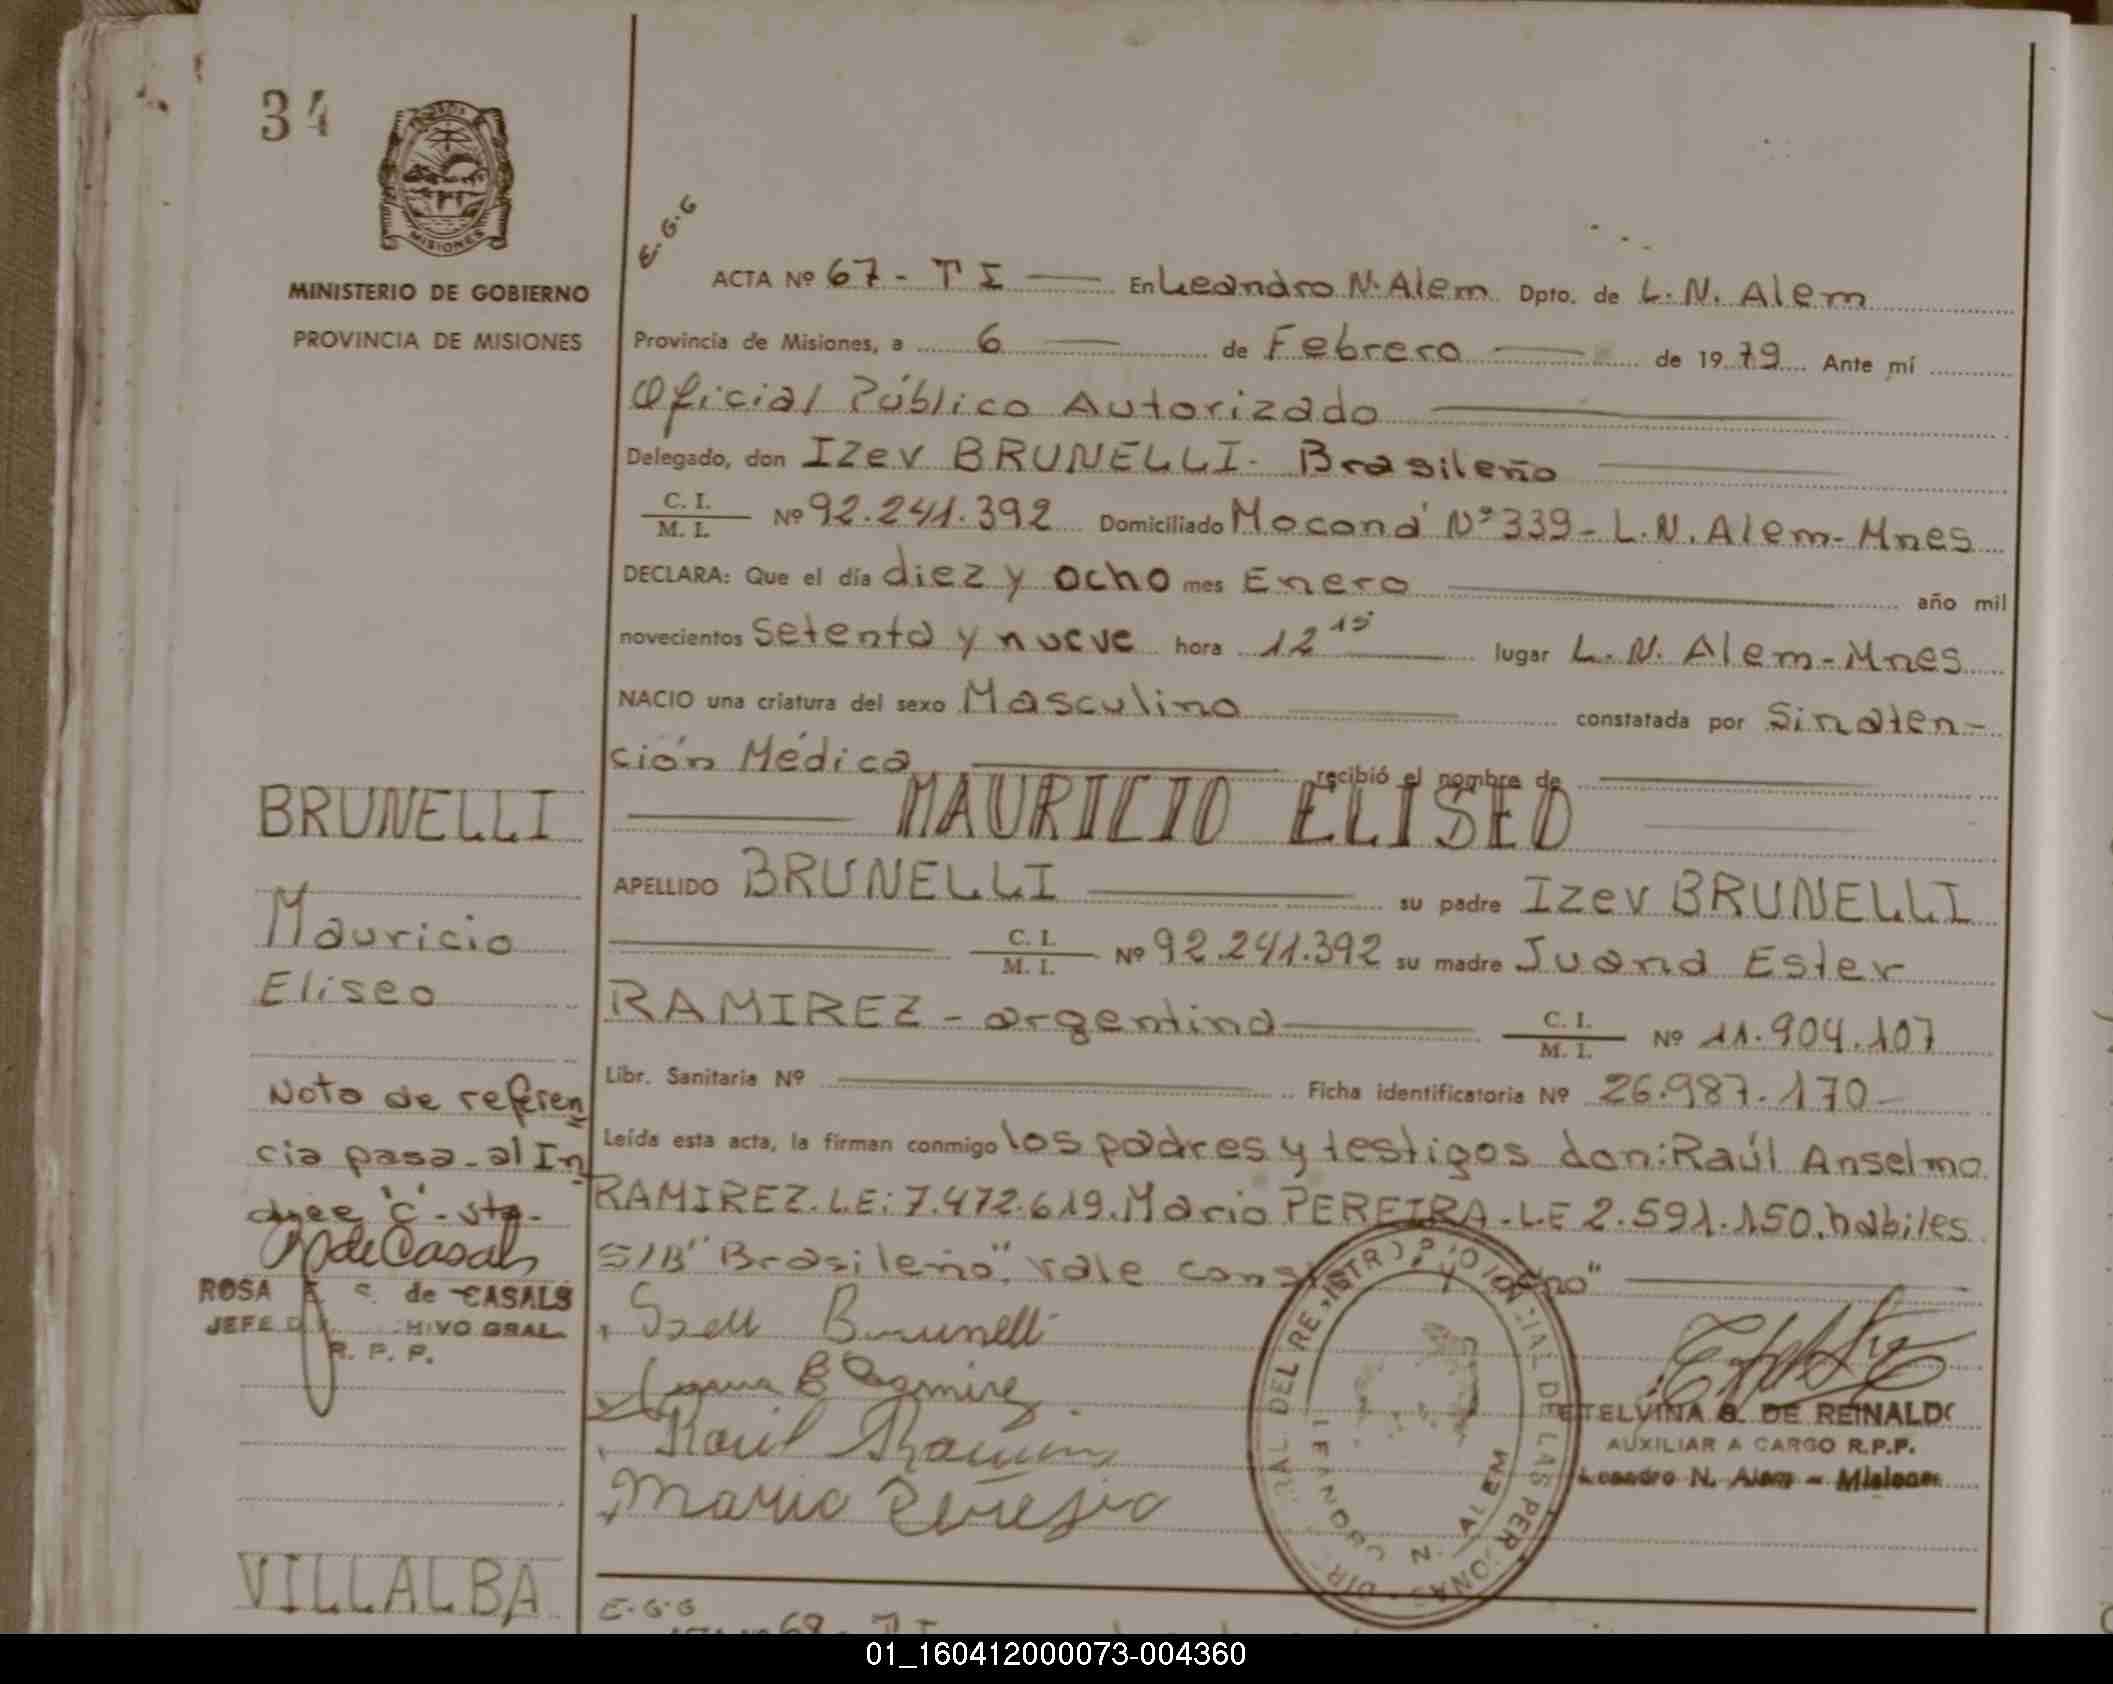 34
MISIONES
MINISTERIO DE GOBIERNO
PROVINCIA DE MISIONES
E.G.G
ACTA Nº 67 - T I — En Leandro N. Alem Dpto. de L. N. Alem
Provincia de Misiones, a 6 — de Febrero — de 1979 Ante mí
Oficial Público Autorizado —
Delegado, don Izev BRUNELLI - Brasileño —
C. I. / M. I. Nº 92.241.392 Domiciliado Moconá Nº 339 - L.N. Alem - Mnes
DECLARA: Que el día diez y ocho mes Enero — año mil
novecientos setenta y nueve hora 12 15 — lugar L. N. Alem - Mnes
NACIO una criatura del sexo Masculino — constatada por Sinaten-
ción Médica — recibió el nombre de —
— MAURICIO ELISEO —
APELLIDO BRUNELLI — su padre Izev BRUNELLI
— C. I. / M. I. Nº 92.241.392 su madre Juana Ester
RAMIREZ - argentina — C. I. / M. I. Nº 11.904.107
Libr. Sanitaria Nº — Ficha identificatoria Nº 26.987.170 -
Leída esta acta, la firman conmigo los padres y testigos don: Raúl Anselmo
RAMIREZ. L.E: 7.472.619. Mario PEREIRA. L.E 2.591.150. habiles
S/B "Brasileño". vale
BRUNELLI
Mauricio
Eliseo
Nota de referen
cia pasa al In
dice "C" - sta.
de Casals
ROSA de CASALS
JEFE HIVO GRAL
R. P. P.
Brunelli
Raúl Ramirez
Mario Pereira
DEL REGISTRO PROVINCIAL DE LAS PERSONAS DIR
N. ALEM
ETELVINA G. DE REINALDO
AUXILIAR A CARGO R.P.P.
Leandro N. Alem - Misiones
VILLALBA
E.G.G
68 - T I
01_160412000073-004360